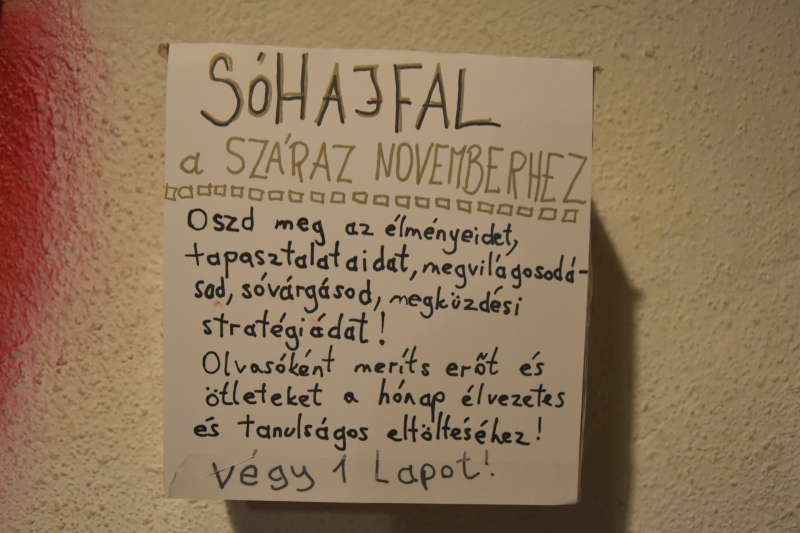 SÓHAJFAL
a SZÁRAZ NOVEMBERHEZ
Oszd meg az élményeidet,
tapasztalataidat, megvilágosodá-
sod, sóvárgásod, megküzdési
stratégiádat!
Olvasóként meríts erőt és
ötleteket a hónap élvezetes
és tanulságos eltöltéséhez!
végy 1 Lapot!